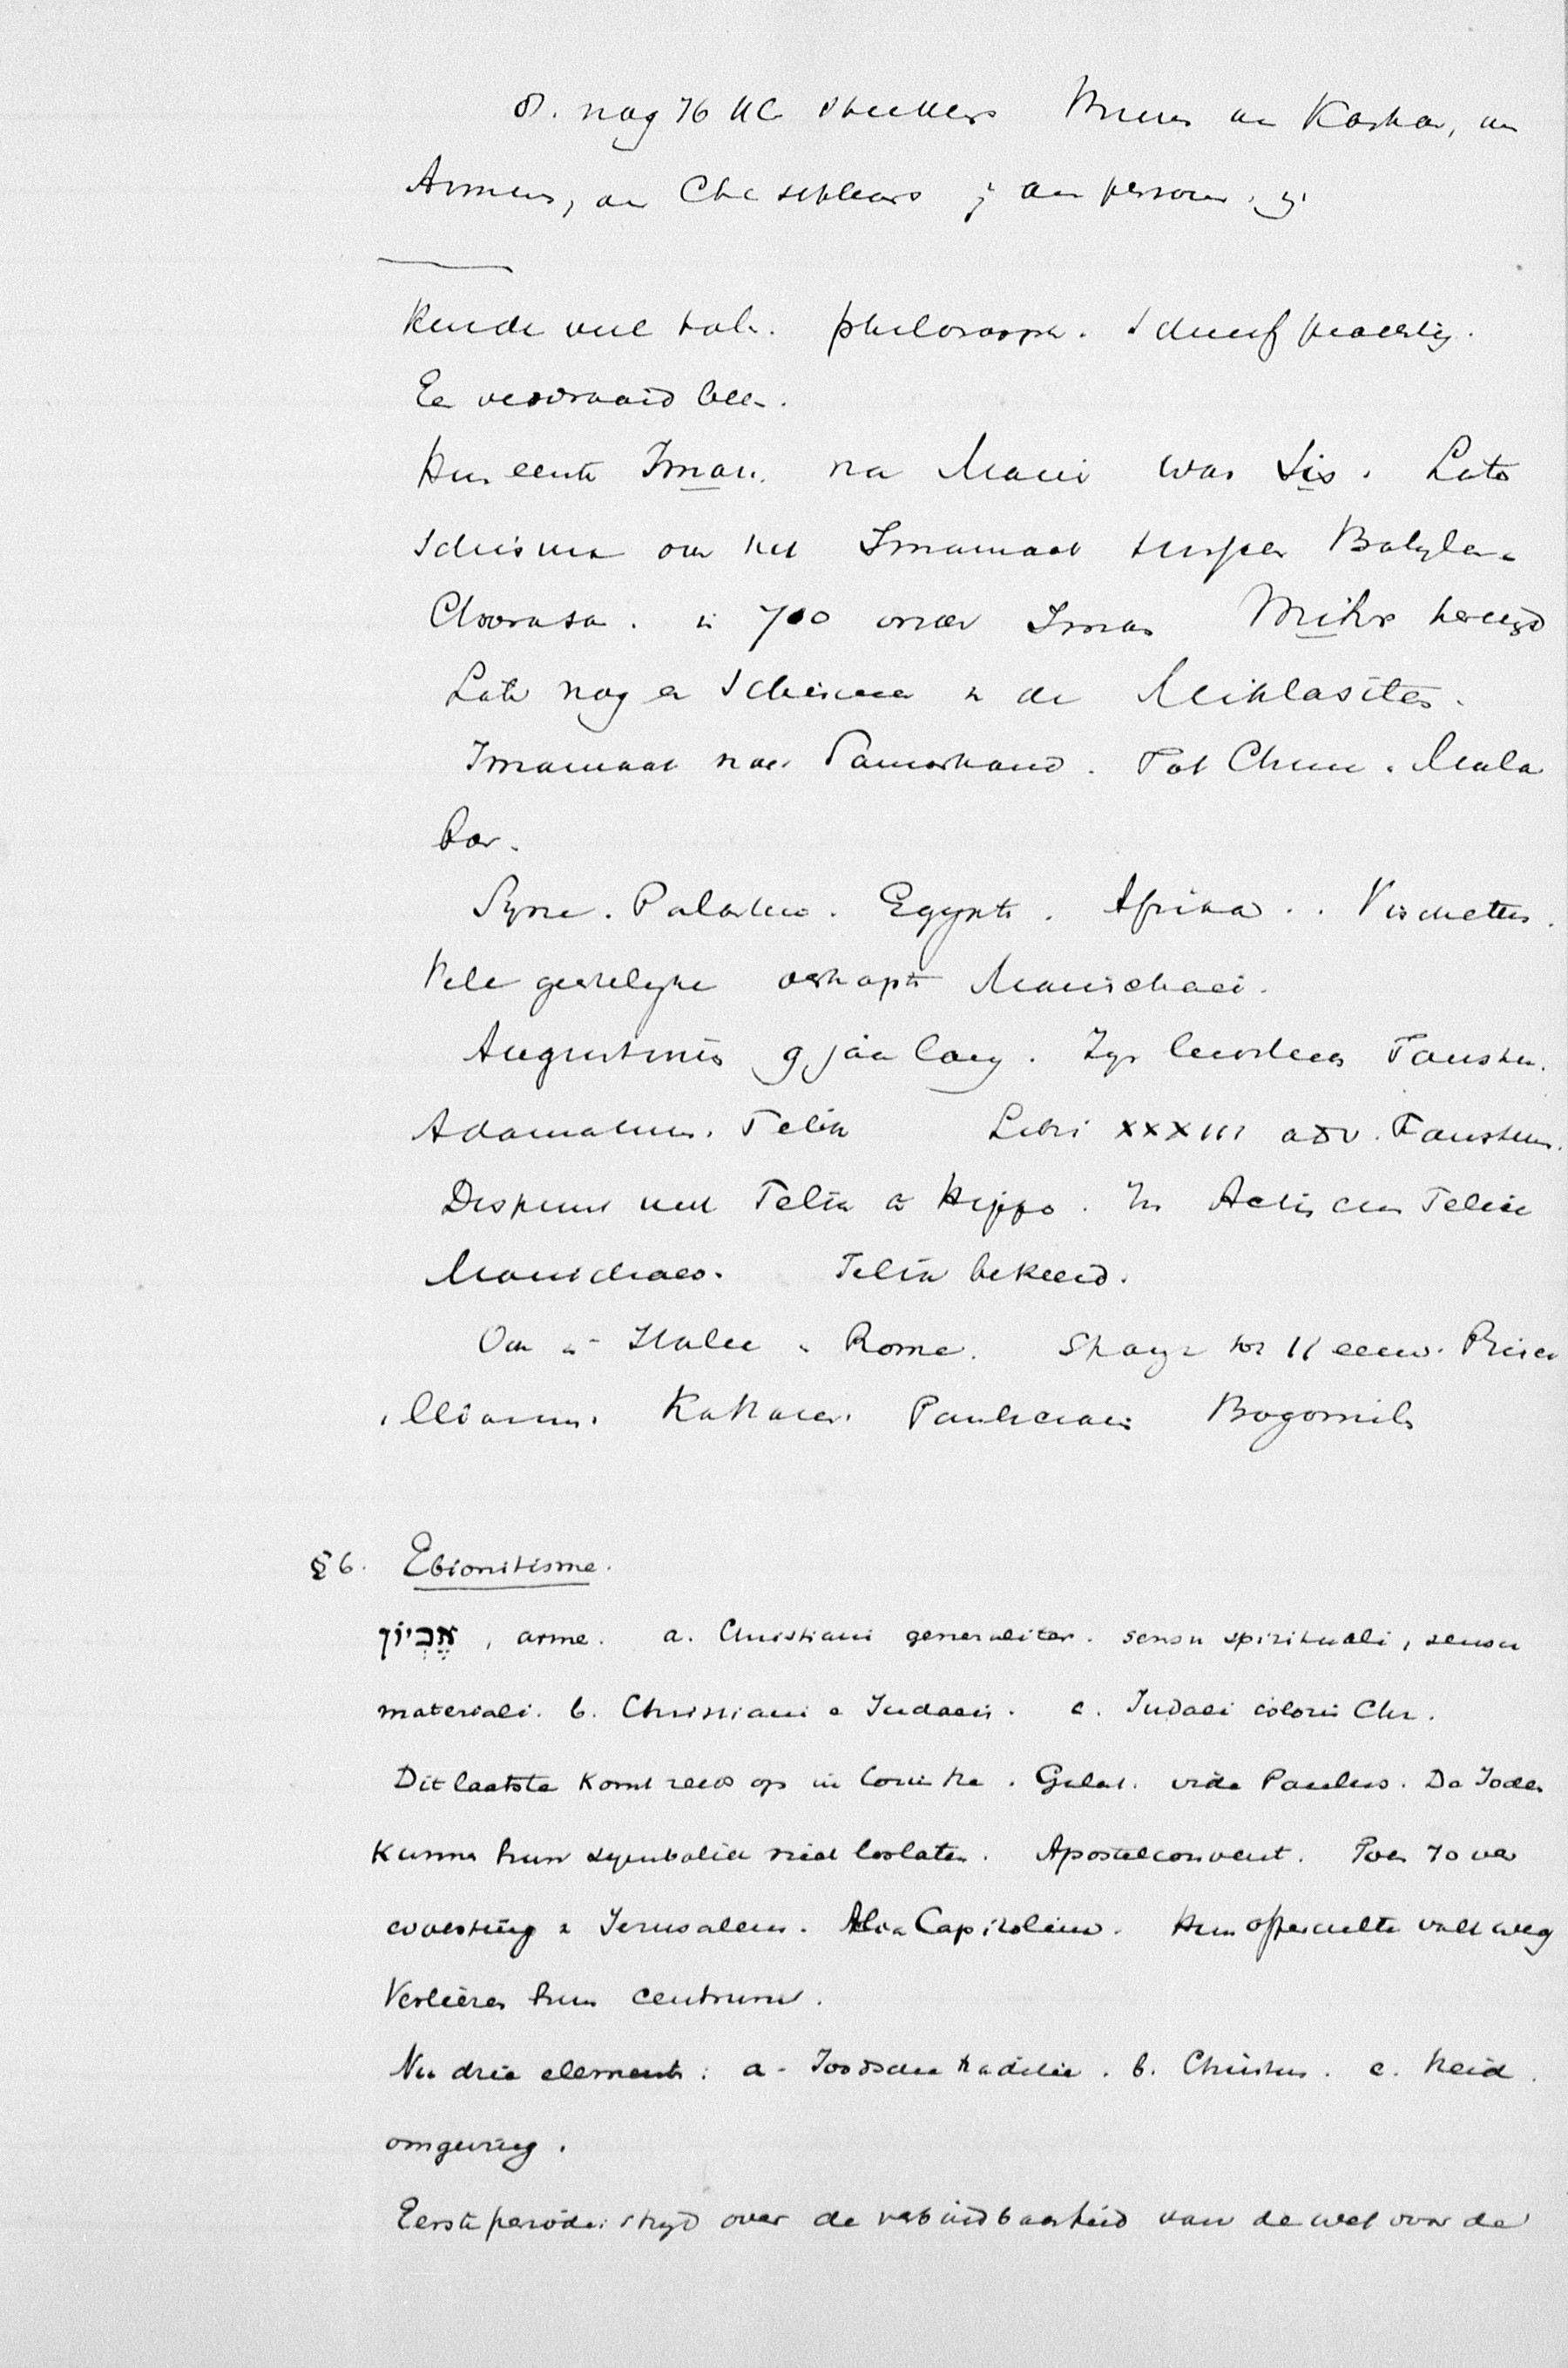 nog 76 Brieven aan Kaskar, aan
Armen, aan
Kende veel talen. philosooph. Schreef prachtig.
Een verdraaid been.
Hun eerste Iman. na Mani was Sis. Later
Schisma over het Imamaat tusschen Babylon en
Chorasan. in 700 onder Iman Mihr hereenigd
Later nog een Schisma v. de Miklasiten.
Imamaat naar Samarkand. Tot China. Mala
bar.
Syrie. Palestina. Egypte. Afrika..
Vele geestelijke Manichaei.
Augustinus 9 jaar lang. Zijn Faustus.
Adamantus. Felix Libri XXXIII adv. Faustum.
Dispuut met Felix te Hippo. In Actis cum Felice
Manichaeo. Felix bekeerd.
Ook in Italie en Rome. Spanje tot 11 eeuw. Prisci
llianus. Katharen. Pauliciani Bogomils
§ 6. Ebionitisme.
אֶבְיוֹן, arme. a. Christiani generaliter. sensu spirituali, sensu
materiali. b. Christiani e Judaeis. c. Judaei coloris Chr.
Dit laatste komt reeds op in Corinthe. Galat. vide Paulus. De Joden
kunnen hun symboliek niet loslaten. Apostelconvent. Toen 70 ver
woesting v. Jerusalem. Aelia Capitolina. Hun offerculte valt weg
Verliezen hun centrum.
Nu drie elementen: a. Joodsche traditie. b. Christus. c. heid.
omgeving.
Eerste periode: strijd over de verbindbaarheid van de wet voor de